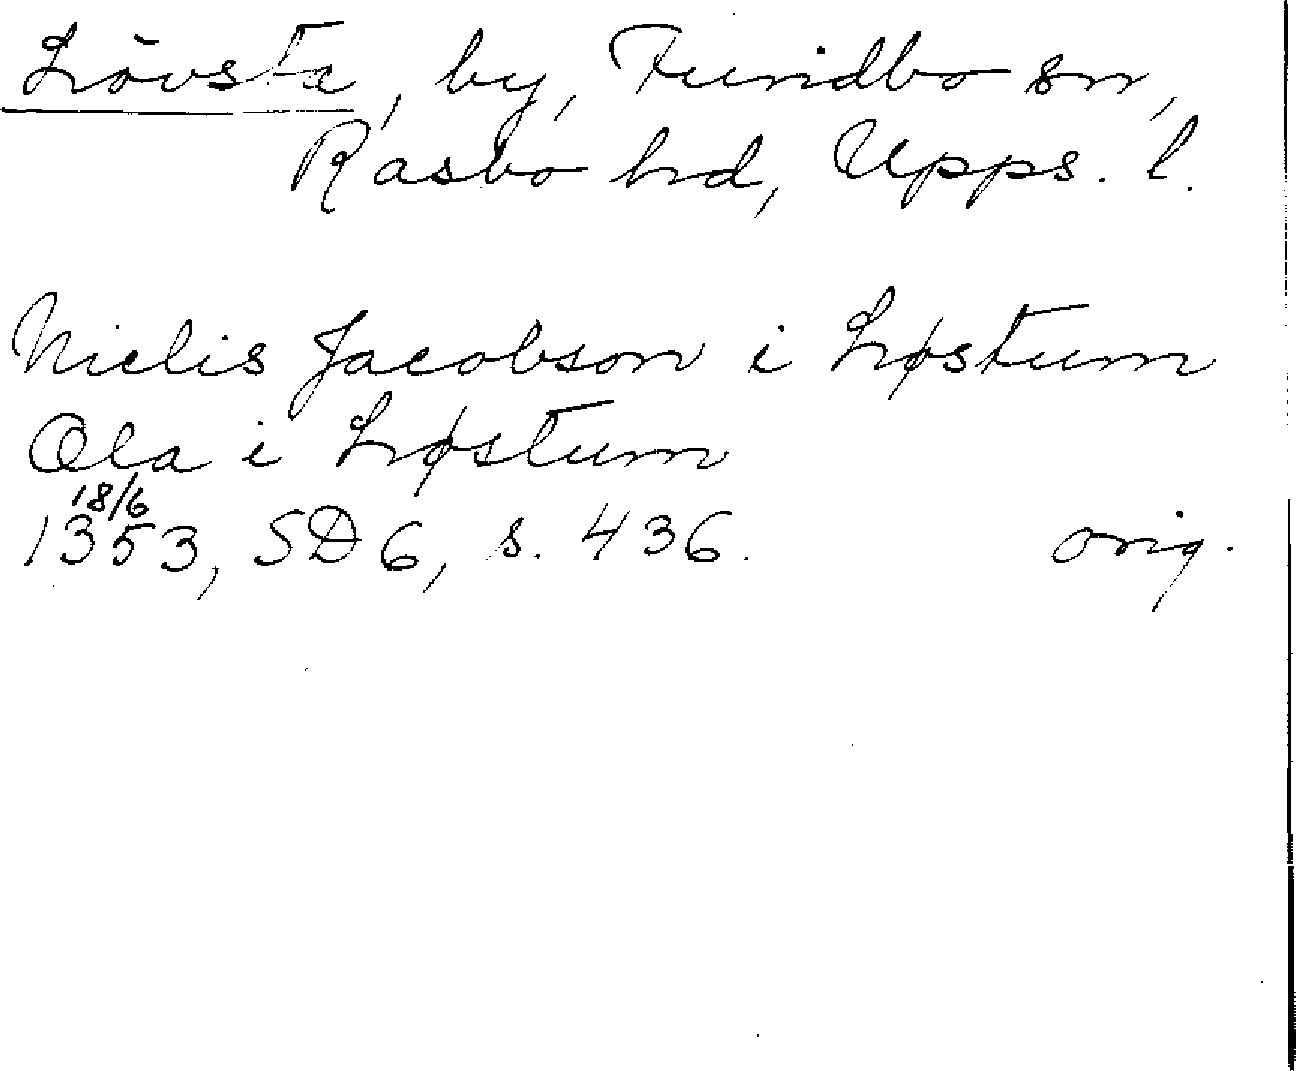 Lövsta, by, Funbo sn,
Rasbo hd, Upps. l.
Nielis Jacobson i Løstum
Ola i Løstum
18/6
1353, SD 6, s. 436. orig.